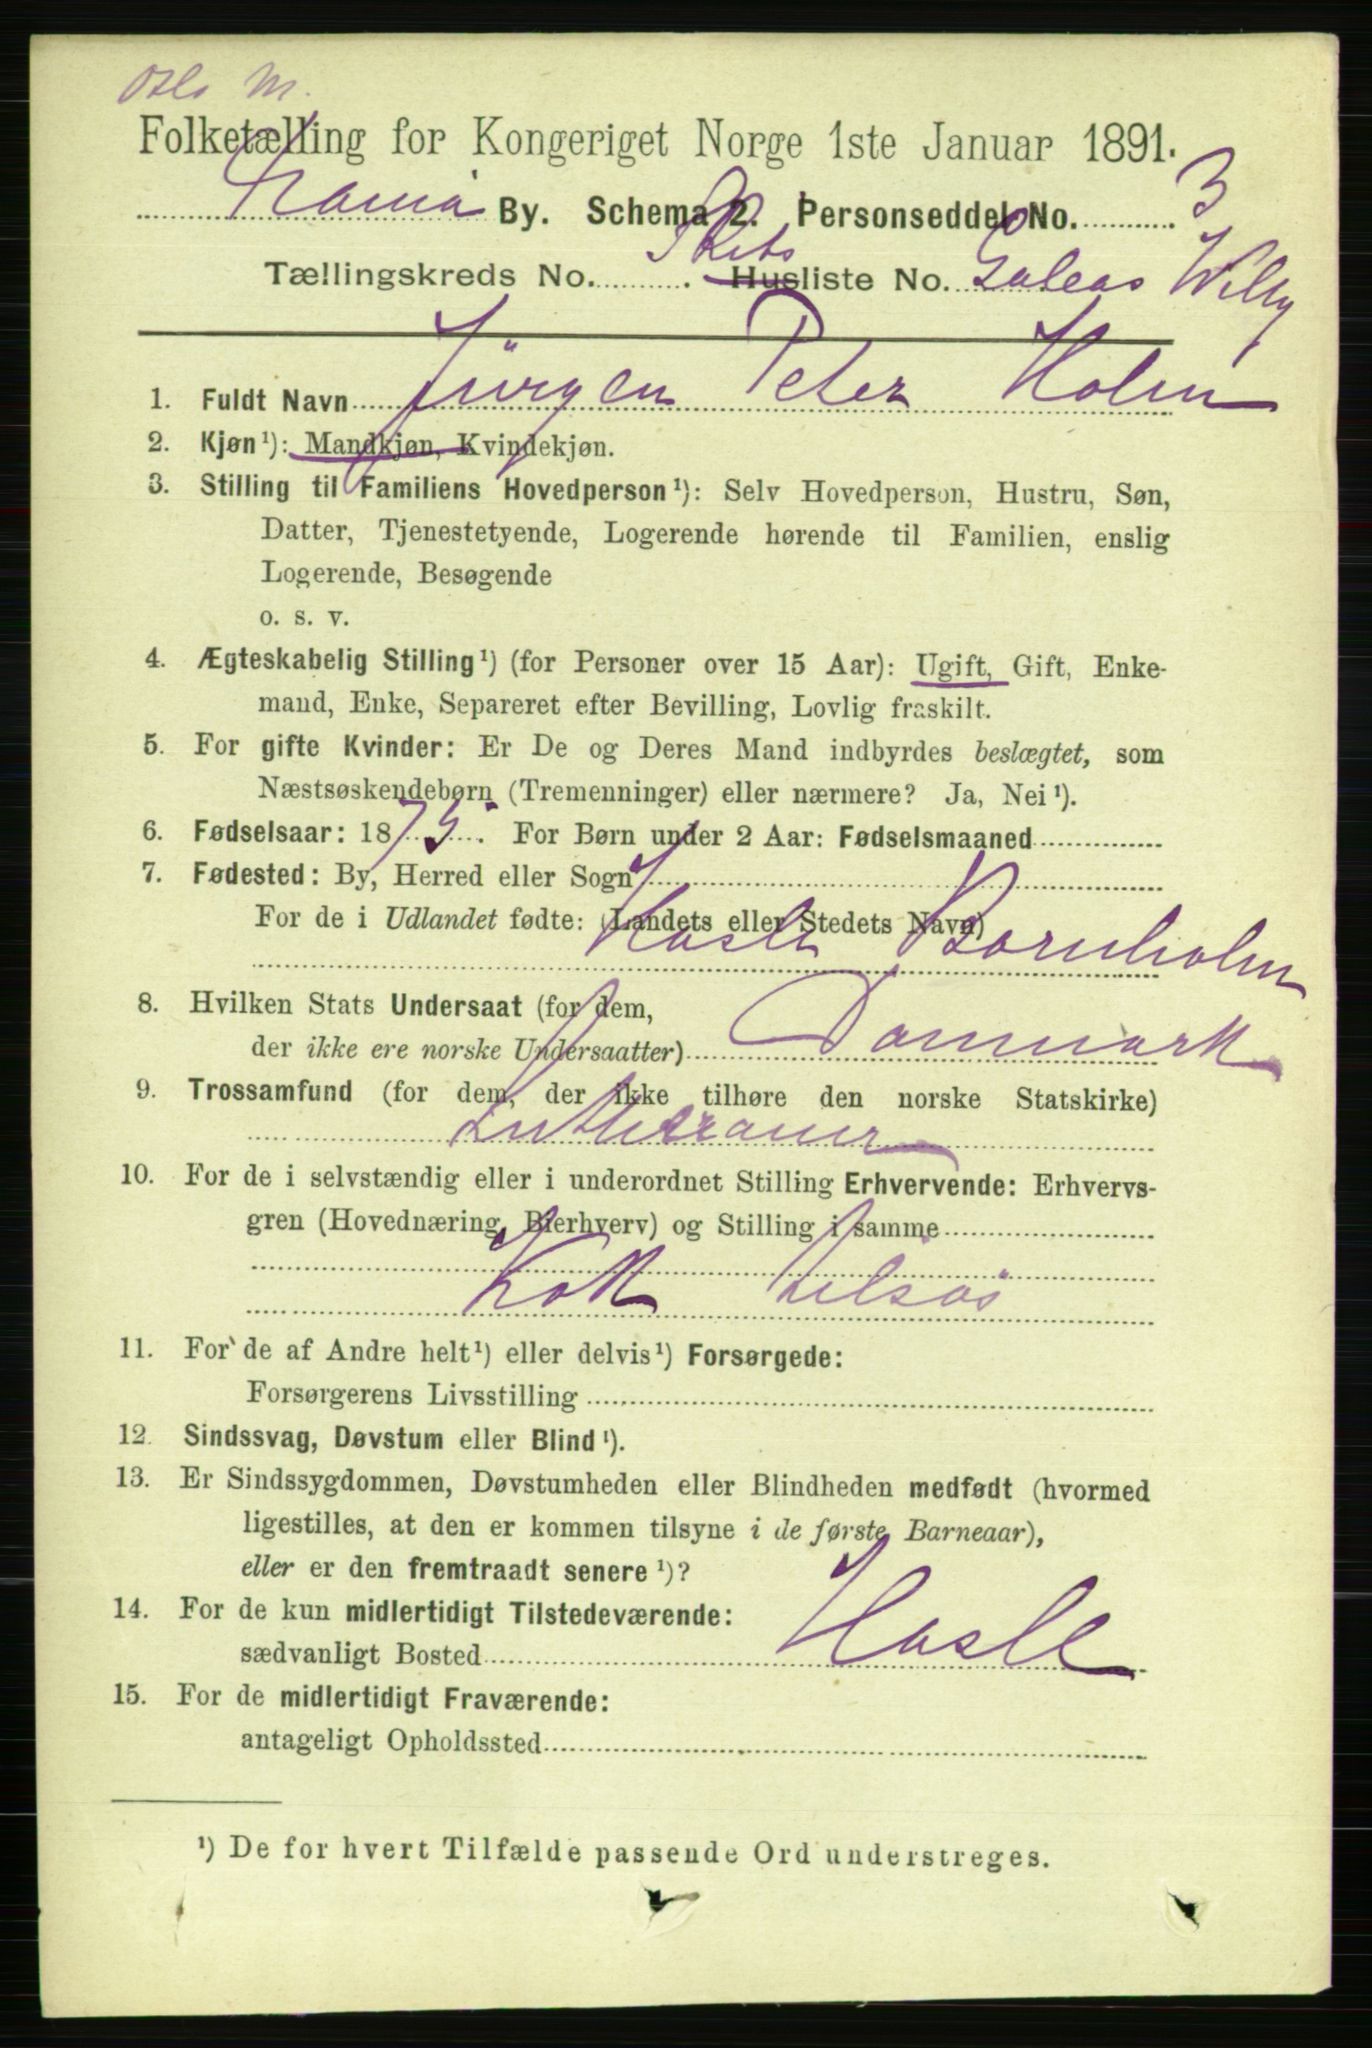 Oslo M.
Folketælling for Kongeriget Norge 1ste Januar 1891.
By. Schema 2. Personseddel No. 3
Tællingskreds No. Skibs Husliste No. Galeas Willy
1. Fuldt Navn Jürgen Peter Holm
2. Kjøn¹): Mandkjøn, Kvindekjøn.
3. Stilling til Familiens Hovedperson¹): Selv Hovedperson, Hustru, Søn,
Datter, Tjenestetyende, Logerende hørende til Familien, enslig
Logerende, Besøgende
o. s. v.
4. Ægteskabelig Stilling¹) (for Personer over 15 Aar): Ugift, Gift, Enke-
mand, Enke, Separeret efter Bevilling, Lovlig fraskilt.
5. For gifte Kvinder: Er De og Deres Mand indbyrdes beslægtet, som
Næstsøskendebørn (Tremenninger) eller nærmere? Ja, Nei¹).
6. Fødselsaar: 1875. For Børn under 2 Aar: Fødselsmaaned
7. Fødested: By, Herred eller Sogn
For de i Udlandet fødte: (Landets eller Stedets Navn)
Hasle Bornholm
8. Hvilken Stats Undersaat (for dem,
der ikke ere norske Undersaatter) Danmark
9. Trossamfund (for dem, der ikke tilhøre den norske Statskirke)
Lutheraner
10. For de i selvstændig eller i underordnet Stilling Erhvervende: Erhvervs-
gren (Hovednæring, Bierhverv) og Stilling i samme
Kok tilsøs
11. For de af Andre helt¹) eller delvis¹) Forsørgede:
Forsørgerens Livsstilling
12. Sindssvag, Døvstum eller Blind¹).
13. Er Sindssygdommen, Døvstumheden eller Blindheden medfødt (hvormed
ligestilles, at den er kommen tilsyne i de første Barneaar),
eller er den fremtraadt senere¹)?
14. For de kun midlertidigt Tilstedeværende:
sædvanligt Bosted Hasle
15. For de midlertidigt Fraværende:
antageligt Opholdssted
¹) De for hvert Tilfælde passende Ord understreges.